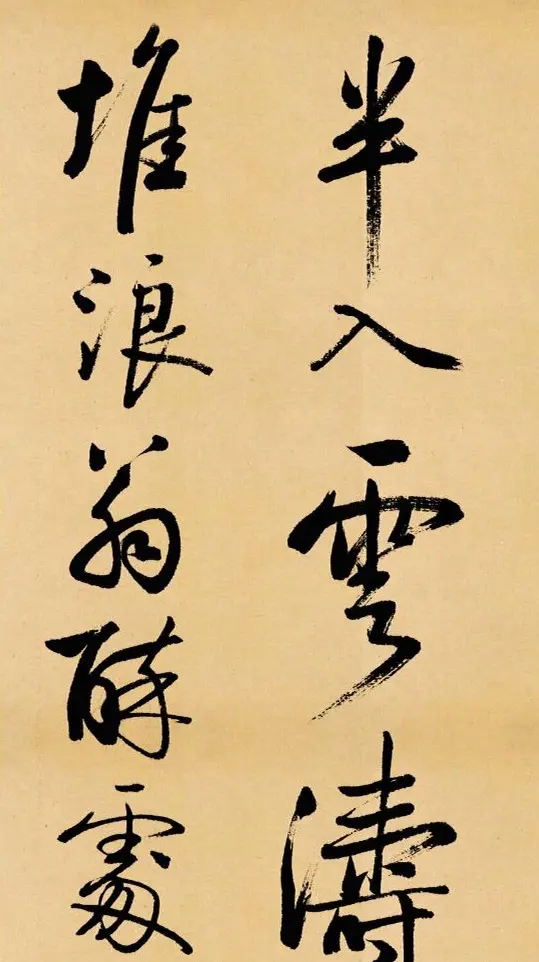 半入雲濤
堆浪翁醉處